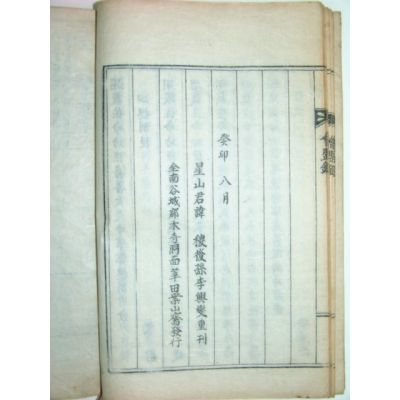 癸卯 八月
星山君諱 稷後孫李興燮重刊
全南谷城郡木寺洞面草田葉山齋發行